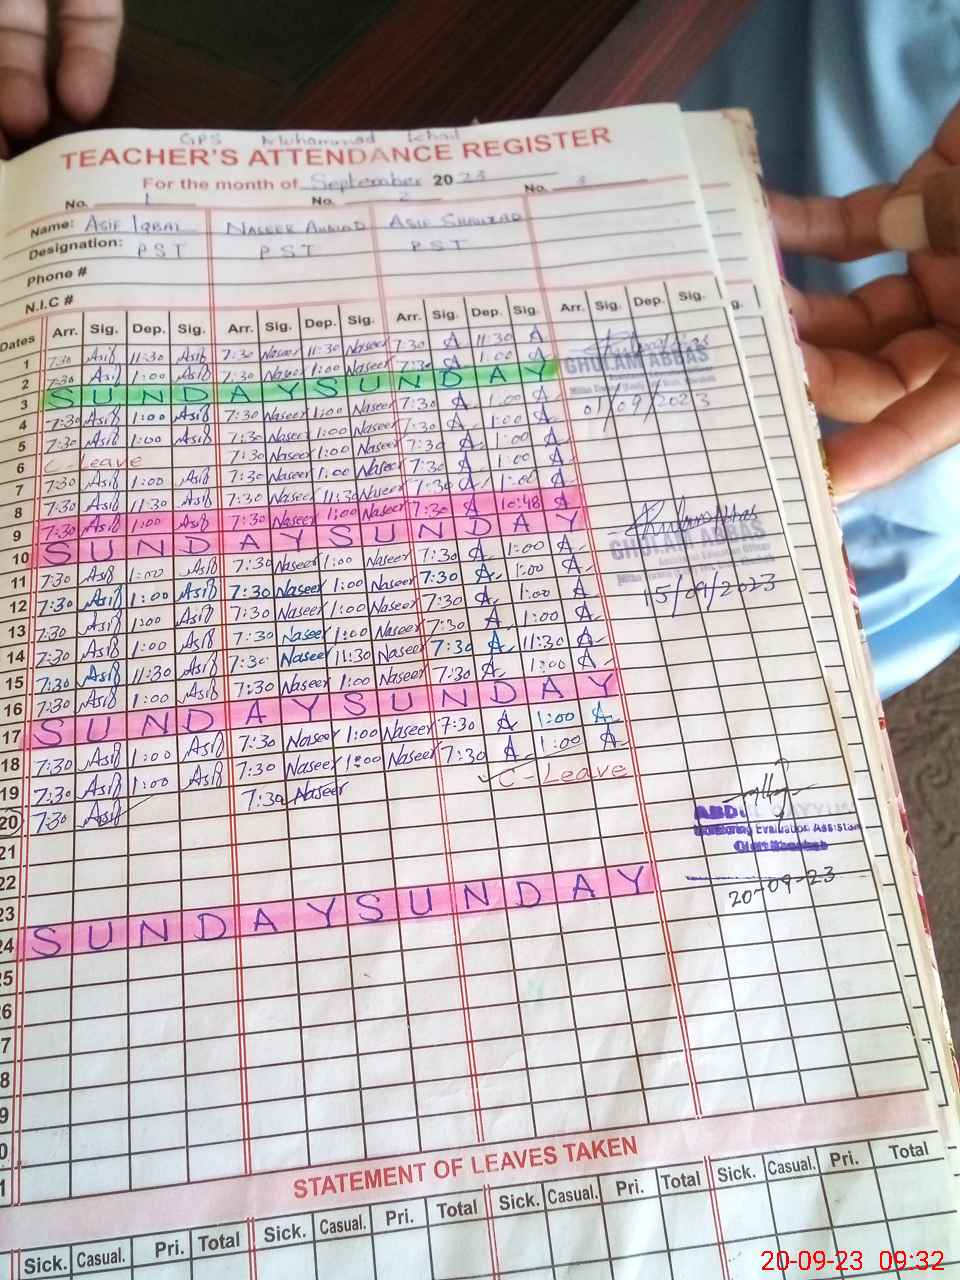 GPS Muhammad
TEACHER'S ATTENDANCE REGISTER
For the month of September 2023
No. 1 No. 2 No. 3
Name: ASIF IQBAL NASEER AHMAD ASIF SHAHZAD
Designation: PST PST PST
Phone #
N.I.C #
Dates Arr. Sig. Dep. Sig. Arr. Sig. Dep. Sig. Arr. Sig. Dep. Sig. Arr. Sig. Dep. Sig. g.
1 7:30 Asif 11:30 Asif 7:30 Naseer 11:30 Naseer 7:30 A 11:30 A
2 7:30 Asif 1:00 Asif 7:30 Naseer 1:00 Naseer 7:30 A 1:00 A
GHULAM ABBAS
3 SUNDAY SUNDAY
01/09/2023
4 7:30 Asif 1:00 Asif 7:30 Naseer 1:00 Naseer 7:30 A 1:00 A
5 7:30 Asif 1:00 Asif 7:30 Naseer 1:00 Naseer 7:30 A 1:00 A
6 C-Leave 7:30 Naseer 1:00 Naseer 7:30 A 1:00 A
7 7:30 Asif 1:00 Asif 7:30 Naseer 1:00 Naseer 7:30 A 1:00 A
8 7:30 Asif 11:30 Asif 7:30 Naseer 11:30 Naseer 7:30 A 1:00 A
9 7:30 Asif 1:00 Asif 7:30 Naseer 1:00 Naseer 7:30 A 10:48 A
10 SUNDAY SUNDAY
GHULAM ABBAS
15/09/2023
11 7:30 Asif 1:00 Asif 7:30 Naseer 1:00 Naseer 7:30 A 1:00 A
12 7:30 Asif 1:00 Asif 7:30 Naseer 1:00 Naseer 7:30 A 1:00 A
13 7:30 Asif 1:00 Asif 7:30 Naseer 1:00 Naseer 7:30 A 1:00 A
14 7:30 Asif 1:00 Asif 7:30 Naseer 1:00 Naseer 7:30 A 1:00 A
15 7:30 Asif 11:30 Asif 7:30 Naseer 11:30 Naseer 7:30 A 11:30 A
16 7:30 Asif 1:00 Asif 7:30 Naseer 1:00 Naseer 7:30 A 1:00 A
17 SUNDAY SUNDAY
18 7:30 Asif 1:00 Asif 7:30 Naseer 1:00 Naseer 7:30 A 1:00 A
19 7:30 Asif 1:00 Asif 7:30 Naseer 1:00 Naseer 7:30 A 1:00 A
20 7:30 Asif 7:30 Naseer C-Leave
ABDUL QAYYUM
Monitoring Evaluation Assistant
20-09-23
21
22
23
24 SUNDAY SUNDAY
25
26
7
8
9
0
1
STATEMENT OF LEAVES TAKEN
Sick. Casual. Pri. Total Sick. Casual. Pri. Total Sick. Casual. Pri. Total Sick. Casual. Pri. Total
20-09-23 09:32